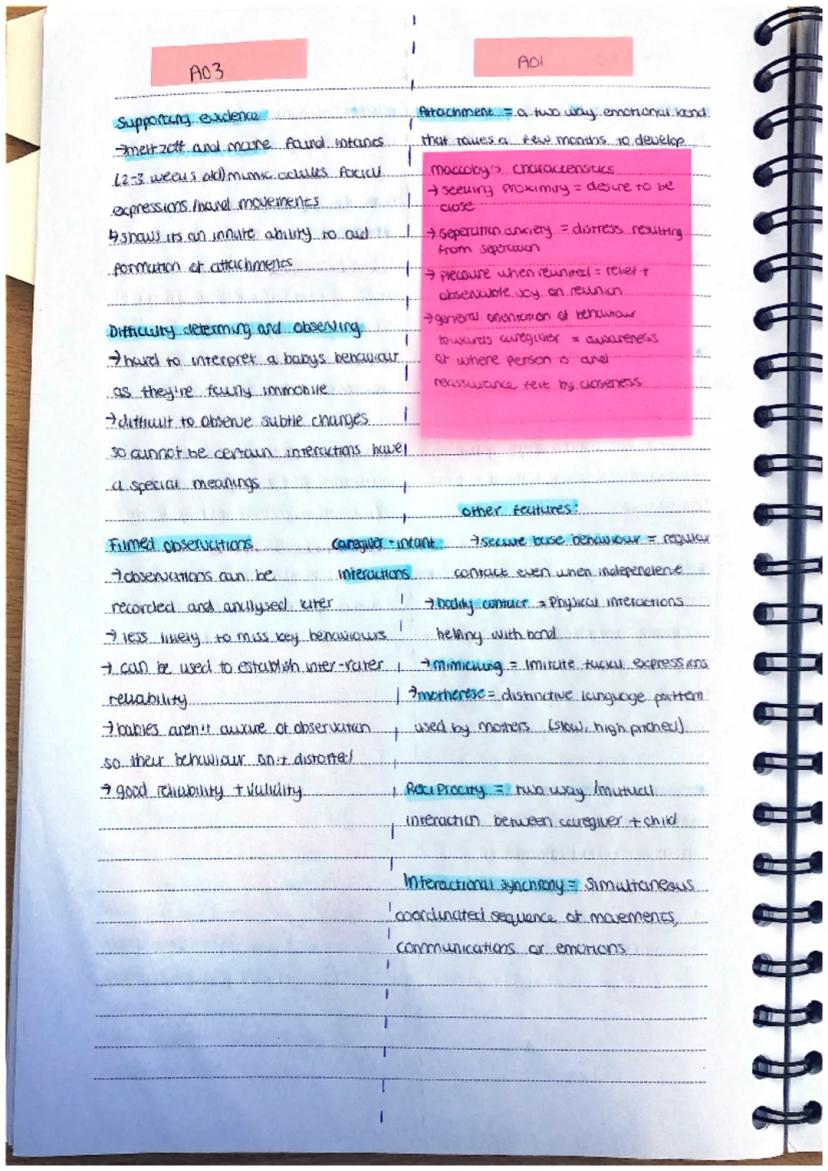 AO3
Supporting evidence
→meltzoff and moore found infants
(2-3 weeks old) mimic adults facial
expressions/hand movements
↳shows its an innate ability to aid
formation of attachments
Difficulty determing and observing
→hard to interpret a babys behaviour
as they're fairly immobile
→difficult to observe subtle changes
so cannot be certain interactions have
a special meanings
Filmed observations
→observations can be
recorded and anylysed later
→ less likely to miss key behaviours
→ can be used to establish inter-rater
reliability
→babies aren't aware of observation
so their behaviour isn't distorted
→ good reliability + validity
caregiver-infant
interactions
AO1
Attachment = a two way emotional bond
that takes a few months to develop
maccoby's characteristics
→ seeking proximity = desire to be
close
→ seperation anxiety = distress resulting
from seperation
→ pleasure when reunited = relief +
observable joy on reunion
→general orientation of behaviour
towards caregiver = awareness
of where person is and
reassurance felt by closeness
other features:
→secure base behaviour = regular
contact even when independent
→bodily contact = Physical interactions
helping with bond
→mimicking = Imitate facial expressions
→motherese = distinctive language pattern
used by mothers (slow, high pitched)
Reciprocity = two way /mutual
interaction between caregiver + child
Interactional synchrony = Simultaneous
coordinated sequence of movements,
communications or emotions